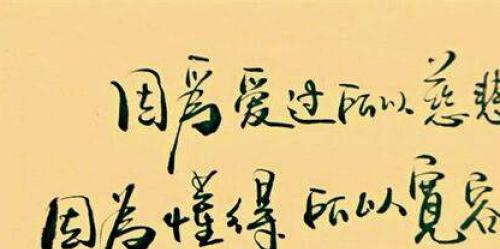 因為爱过所以慈悲
因為懂得所以寬容